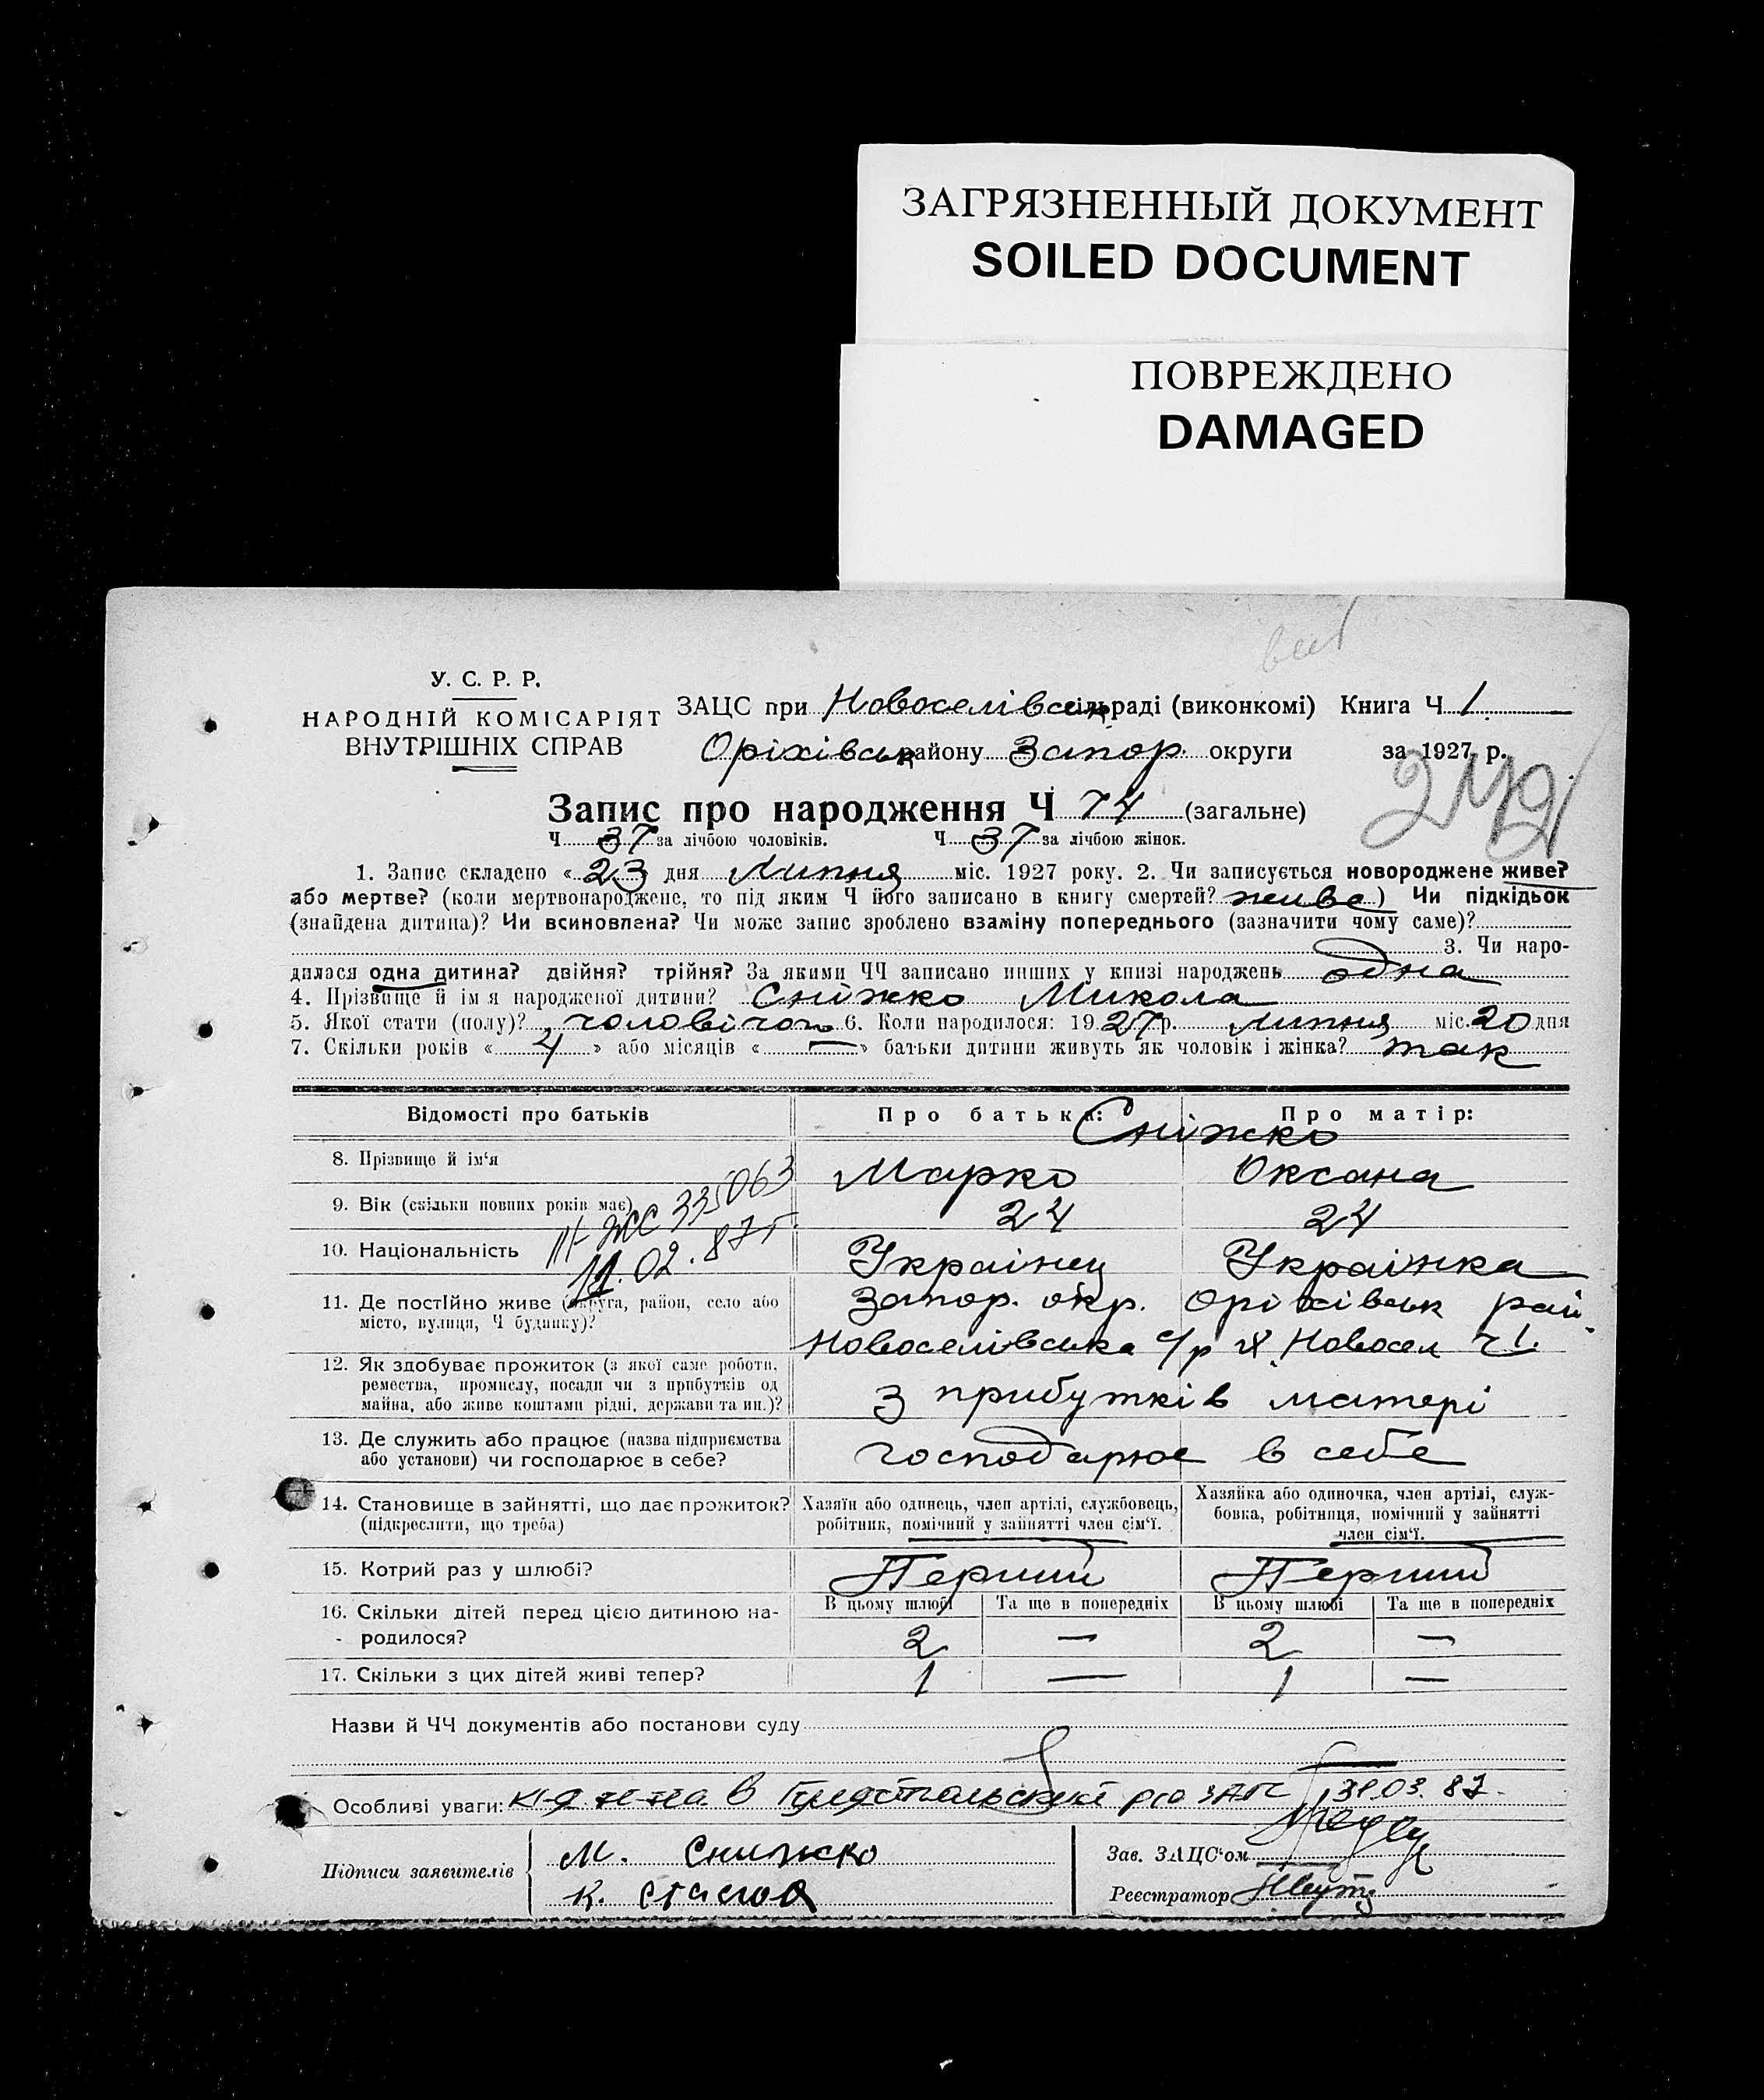 ЗАГРЯЗНЕННЫЙ ДОКУМЕНТ
SOILED DOCUMENT
ПОВРЕЖДЕНО
DAMAGED
У. С. Р. Р.
НАРОДНІЙ КОМІСАРІЯТ
ВНУТРІШНІХ СПРАВ
ЗАЦС при Новоселівськ сільраді (виконкомі) Книга Ч 1
Оріхівськ району Запор. округи за 1927 р.
Запис про народження Ч 74 (загальне)
Ч 37 за лічбою чоловіків. Ч 37 за лічбою жінок.
1. Запис складено « 23 дня Липня міс. 1927 року. 2. Чи записується новороджене живе?
або мертве? (коли мертвонароджене, то під яким Ч його записано в книгу смертей? живе) Чи підкідьок
(знайдена дитина)? Чи всиновлена? Чи може запис зроблено взаміну попереднього (зазначити чому саме)?
3. Чи наро-
дилася одна дитина? двійня? трійня? За якими ЧЧ записано инших у книзі народжень одна
4. Прізвище й ім я народженої дитини? Сніжко Микола
5. Якої стати (полу)? чоловічої 6. Коли народилося: 1927р. липня міс. 20 дня
7. Скільки років « 4 » або місяців « — » батьки дитини живуть як чоловік і жінка? так
Відомості про батьків Про батька: Про матір:
Сніжко
8. Прізвище й ім‘я Марко Оксана
9. Вік (скільки повних років має) 24 24
ЖС 335063
11.02.87г.
10. Національність Українец Українка
11. Де постійно живе (округа, район, село або
місто, вулиця, Ч будинку)?
Запор. окр. Оріхівськ рай.
Новоселівська с/р х. Новосел ч 1.
12. Як здобуває прожиток (з якої саме роботи,
ремества, промислу, посади чи з прибутків од
майна, або живе коштами рідні, держави та ин.)?
З прибутків матері
13. Де служить або працює (назва підприємства
або установи) чи господарює в себе?
господарює в себе
14. Становище в зайнятті, що дає прожиток?
(підкреслити, що треба)
Хазяїн або одинець, член артілі, службовець,
робітник, помічний у зайнятті член сім‘ї.
Хазяйка або одиночка, член артілі, служ-
бовка, робітниця, помічний у зайнятті
член сім‘ї.
15. Котрий раз у шлюбі? Перший Перший
16. Скільки дітей перед цією дитиною на-
родилося?
В цьому шлюбі Та ще в попередніх В цьому шлюбі Та ще в попередніх
2 — 2 —
17. Скільки з цих дітей живі тепер? 1 — 1 —
Назви й ЧЧ документів або постанови суду
Особливі уваги: в р/о ЗАГС 31.03.87.
Підписи заявителів
М. Снижко
К.
Зав. ЗАЦС‘ом
Реєстратор